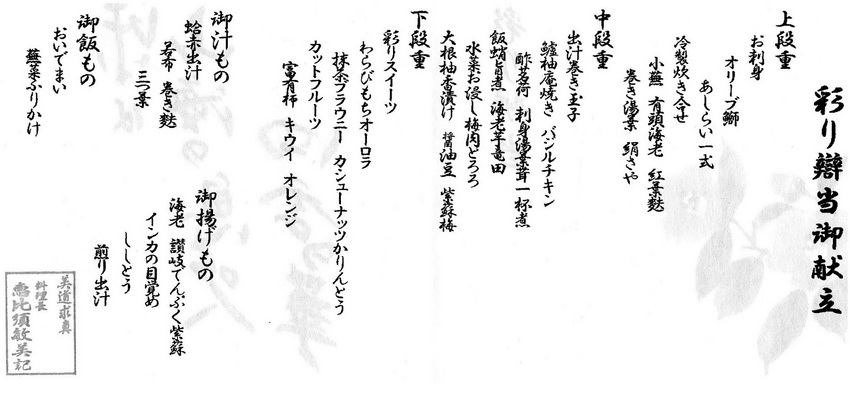 彩り辨当御献立
上段重
お刺身
オリーブ鰤
あしらい一式
冷製炊き合せ
小蕪 有頭海老 紅葉麩
巻き湯葉 絹さや
中段重
出汁巻き玉子
鱸柚庵焼き バジルチキン
酢茗荷 刺身湯葉茸一杯煮
飯蛸旨煮 海老芋竜田
水菜お浸し梅肉とろろ
大根柚香漬け 醤油豆 紫蘇梅
下段重
彩りスイーツ
わらびもちオーロラ
抹茶ブラウニー カシューナッツかりんとう
カットフルーツ
富有柿 キウイ オレンジ
御汁もの
蛤赤出汁
若布 巻き麩
三つ葉
御揚げもの
海老 讃岐でんぶく紫蘇
インカの目覚め
ししとう
煎り出汁
御飯もの
おいでまい
蕪菜ふりかけ
美道求真
料理長
恵比須敏美記